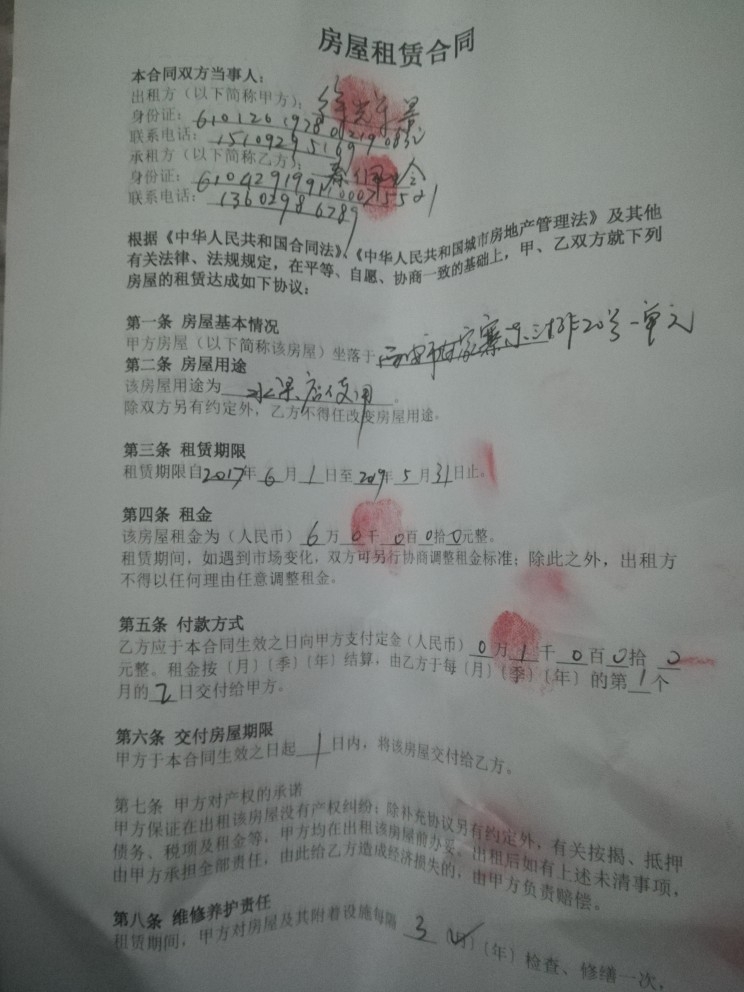 房屋租赁合同
本合同双方当事人：
出租方（以下简称甲方）：
身份证：
联系电话：
承租方（以下简称乙方）：
身份证：
联系电话：13602986289
根据《中华人民共和国合同法》、《中华人民共和国城市房地产管理法》及其他
有关法律、法规规定，在平等、自愿、协商一致的基础上，甲、乙双方就下列
房屋的租赁达成如下协议：
第一条 房屋基本情况
甲方房屋（以下简称该房屋）坐落于西安市 家寨东三排20号一单元
第二条 房屋用途
该房屋用途为水果店使用。
除双方另有约定外，乙方不得任改变房屋用途。
第三条 租赁期限
租赁期限自2017年6月1日至2019年5月31日止。
第四条 租金
该房屋租金为（人民币）6万0千0百0拾0元整。
租赁期间，如遇到市场变化，双方可另行协商调整租金标准；除此之外，出租方
不得以任何理由任意调整租金。
第五条 付款方式
乙方应于本合同生效之日向甲方支付定金（人民币）0万1千0百0拾0
元整。租金按〔月〕〔季〕〔年〕结算，由乙方于每〔月〕〔季〕〔年〕的第1个
月的2日交付给甲方。
第六条 交付房屋期限
甲方于本合同生效之日起1日内，将该房屋交付给乙方。
第七条 甲方对产权的承诺
甲方保证在出租该房屋没有产权纠纷；除补充协议另有约定外，有关按揭、抵押
债务、税项及租金等，甲方均在出租该房屋前办妥。出租后如有上述未清事项，
由甲方承担全部责任，由此给乙方造成经济损失的，由甲方负责赔偿。
第八条 维修养护责任
租赁期间，甲方对房屋及其附着设施每隔3〔月〕〔年〕检查、修缮一次，